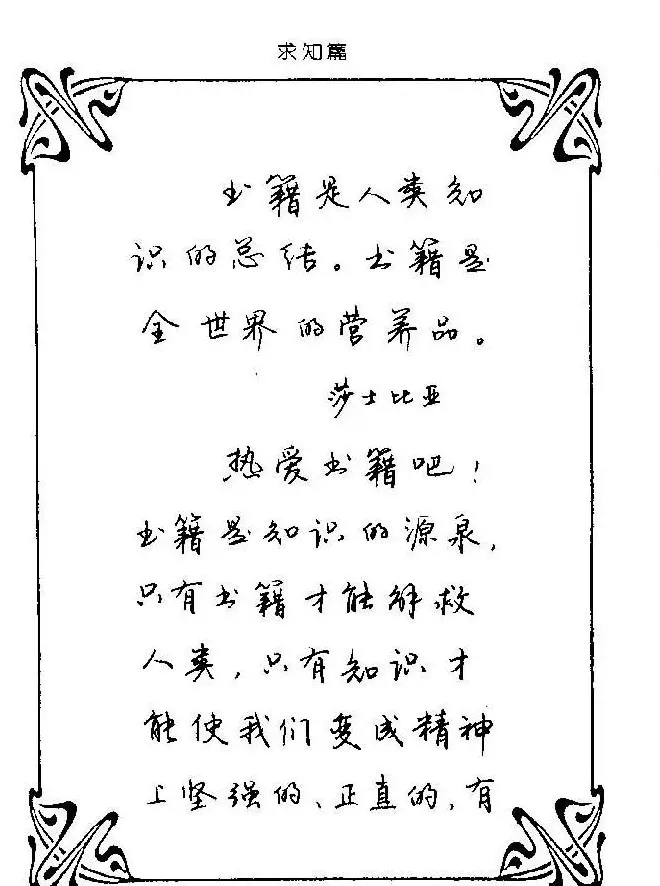 求知篇
书籍是人类知
识的总结。书籍是
全世界的营养品。
莎士比亚
热爱书籍吧！
书籍是知识的源泉，
只有书籍才能解救
人类，只有知识才
能使我们变成精神
上坚强的、正直的，有